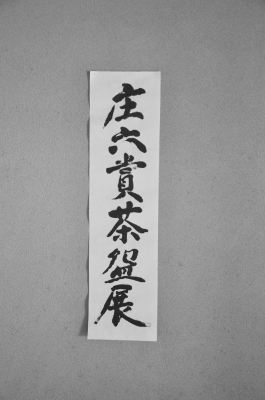 庄六賞茶盌展